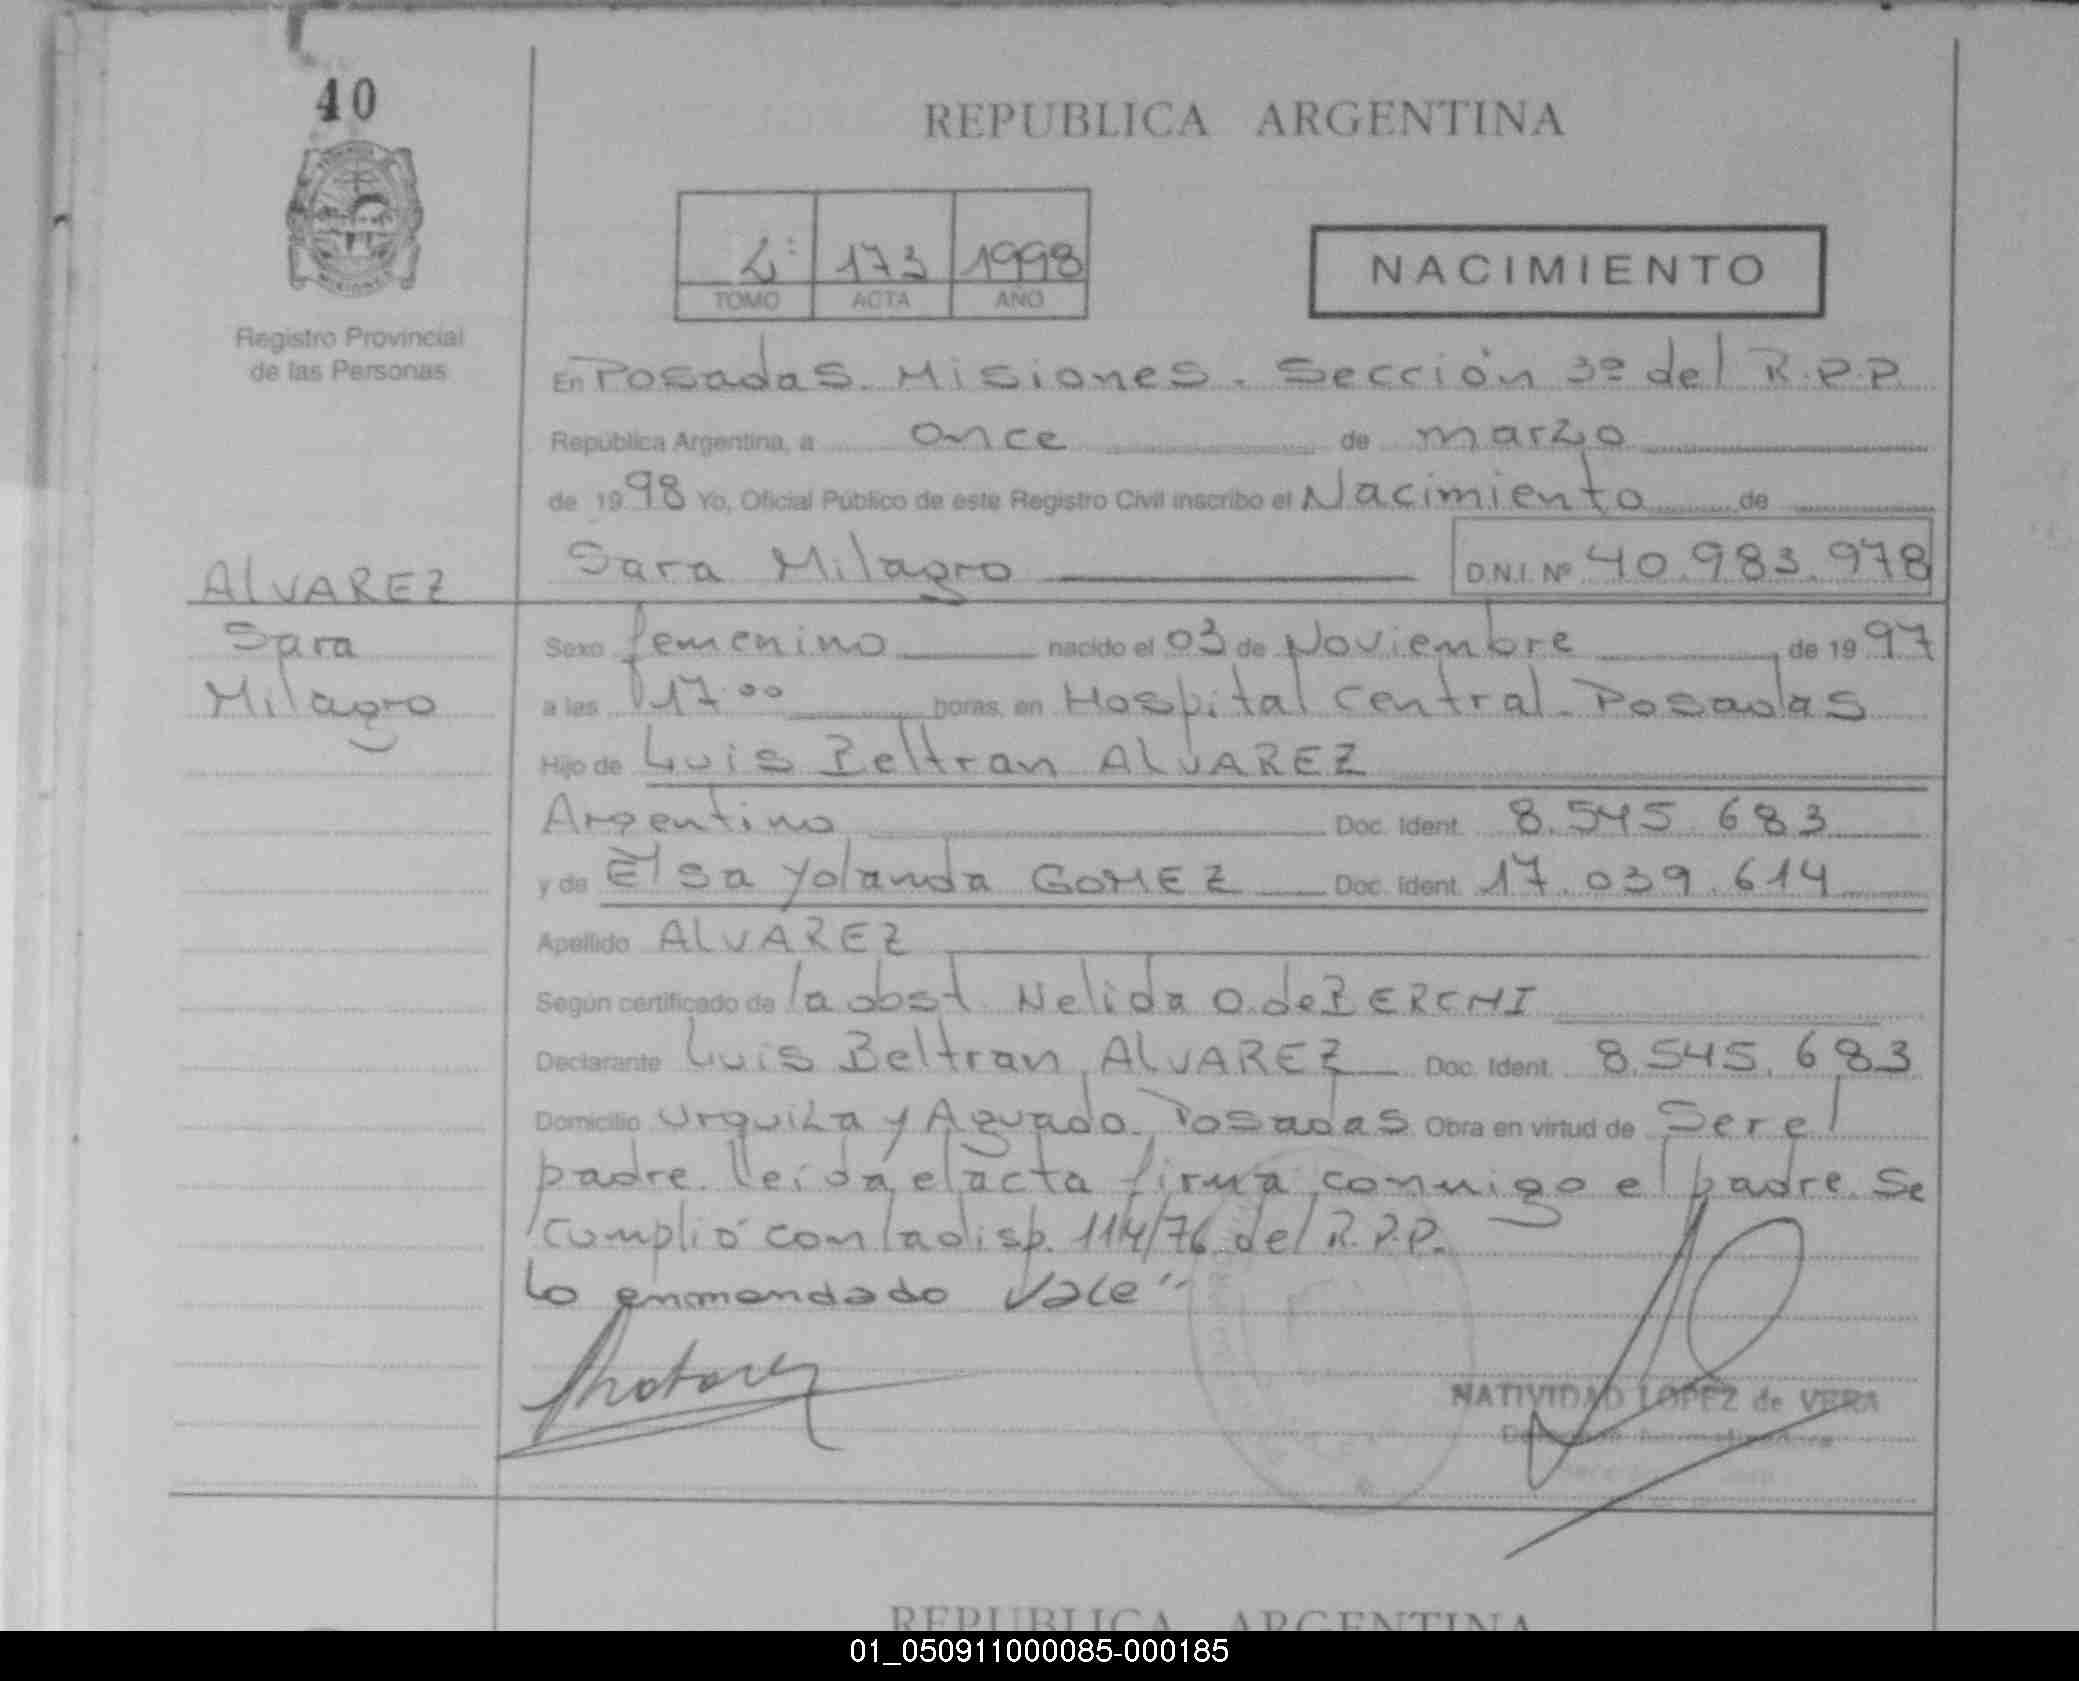 40
REPUBLICA ARGENTINA
1º 173 1998
TOMO ACTA AÑO
NACIMIENTO
Registro Provincial
de las Personas
En Posadas. Misiones. Sección 3º del R.P.P.
República Argentina, a once de marzo
de 1998 Yo, Oficial Público de este Registro Civil inscribo el Nacimiento de
Sara Milagro D.N.I. Nº 40.983.978
ALVAREZ
Sara
Milagro
Sexo femenino nacido el 03 de Noviembre de 1997
a las 17:00 horas, en Hospital Central. Posadas
Hijo de Luis Beltran ALVAREZ
Argentino Doc. Ident. 8.545.683
y de Elsa Yolanda GOMEZ Doc. Ident. 17.039.614
Apellido ALVAREZ
Según certificado de la obst Nelida O. de BERCHI
Declarante Luis Beltran ALVAREZ Doc. Ident. 8.545.683
Domicilio Urquiza y Aguado. Posadas Obra en virtud de Ser el
padre. leida el acta firma conmigo el padre. Se
cumplió con la disp. 114/76 del R.P.P.
Lo enmendado Vale"
NATIVIDAD LOPEZ de VERA
REPUBLICA ARGENTINA
01_050911000085-000185